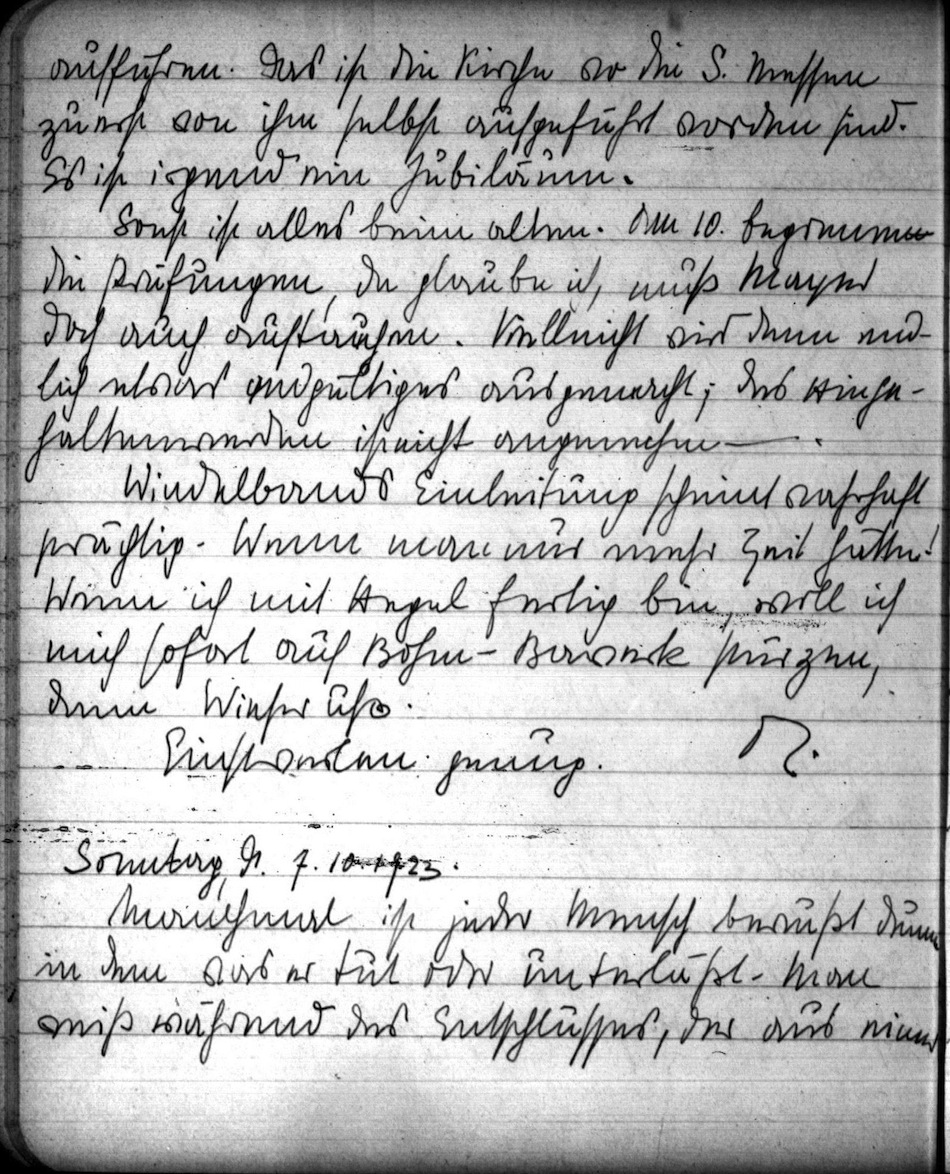 aufführen. Das ist die Kirche wo die S. Messen
zuerst von ihm selbst aufgeführt worden sind.
Es ist irgend ein Jubiläum.
Sonst ist alles beim alten. Am 10. beginnen
die Prüfungen, da glaube ich, muß Mayer
doch auch auftauchen. Vielleicht wird dann end-
lich etwas endgültiges ausgemacht; das Hinge-
haltenwerden ist nicht angenehm — .
Windelbands Einleitung scheint wahrhaft
prächtig. Wenn man nur mehr Zeit hätte!
Wenn ich mit Hegel fertig bin, will ich
mich sofort auf Böhm-Bawerk stürzen,
dann
Einstweilen genug.
Sonntag, d. 7. 10. 1923.
Manchmal ist jeder Mensch bewußt dumm
in dem was er tut oder unterläßt. Man
weiß während des Entschlusses, der aus einer